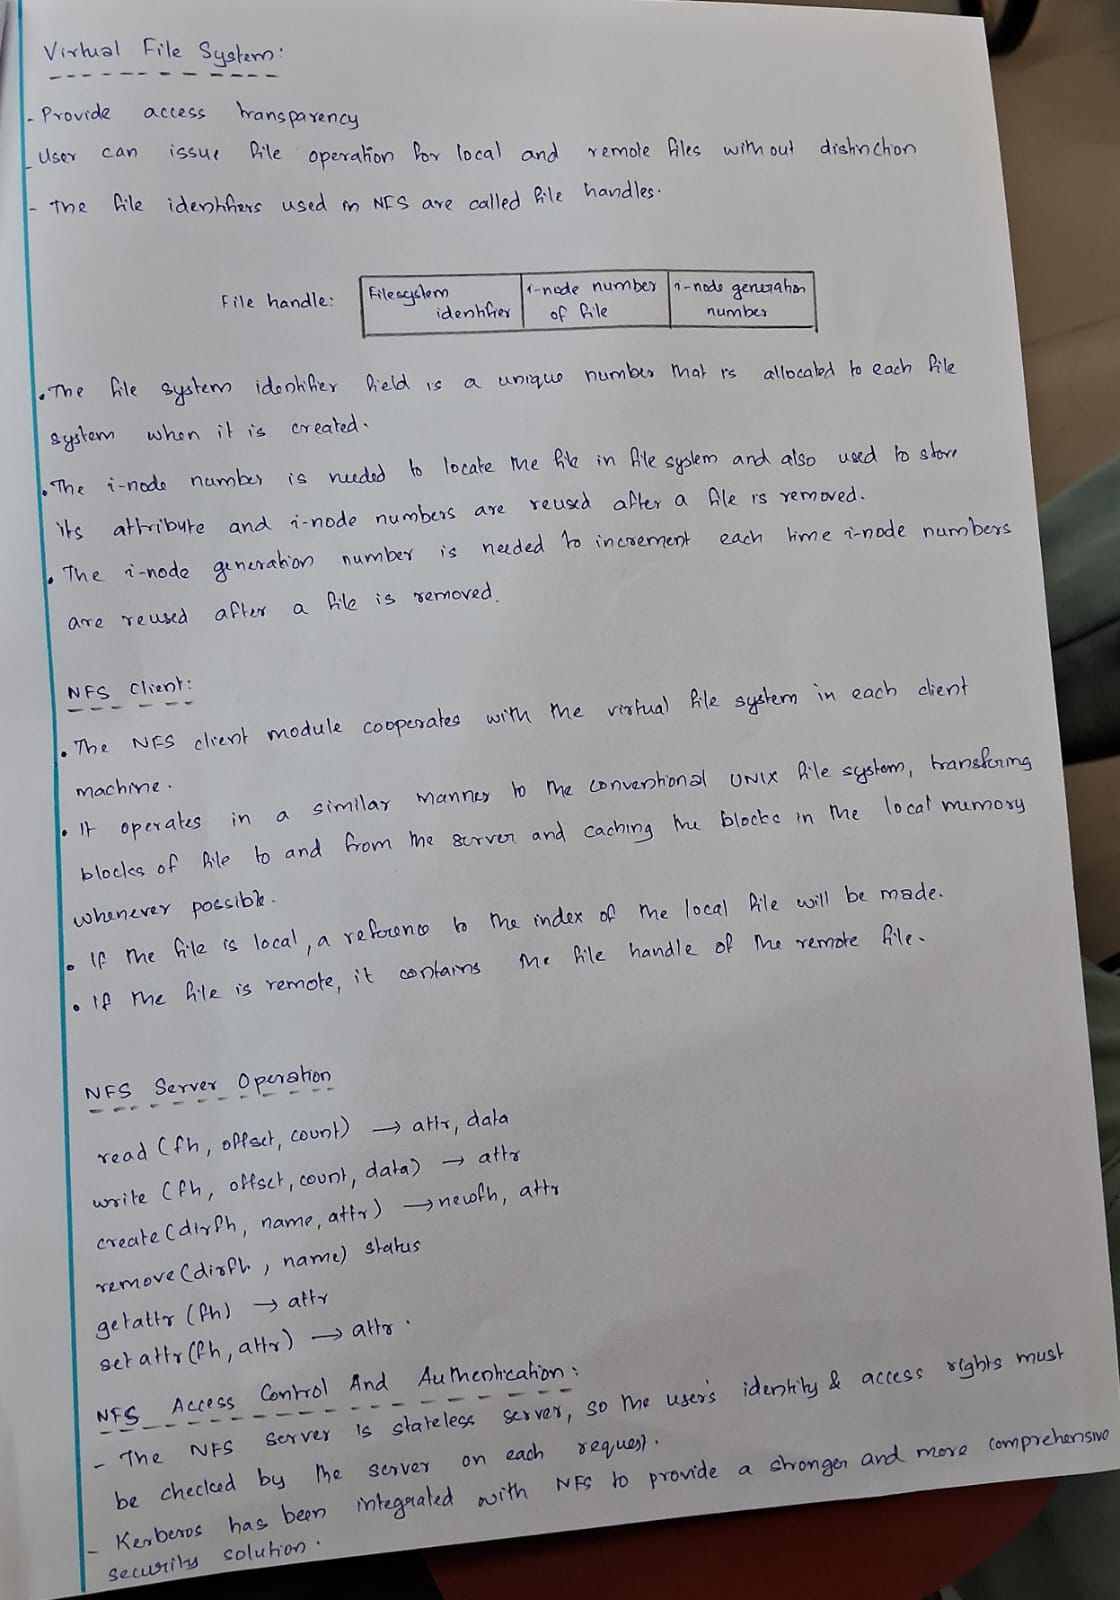 Virtual File System:
- Provide access transparency
- User can issue file operation for local and remote files with out distinction
- The file identifiers used in NFS are called file handles.
File handle: Filesystem identifier i-node number of file i-node generation number
• The file system identifier field is a unique number that is allocated to each file
system when it is created.
• The i-node number is needed to locate the file in file system and also used to store
its attribute and i-node numbers are reused after a file is removed.
• The i-node generation number is needed to increment each time i-node numbers
are reused after a file is removed.
NFS Client:
• The NFS client module cooperates with the virtual file system in each client
machine.
• It operates in a similar manner to the conventional UNIX file system, transfering
blocks of file to and from the server and caching the blocks in the local memory
whenever possible.
• If the file is local, a reference to the index of the local file will be made.
• If the file is remote, it contains the file handle of the remote file.
NFS Server Operation
read (fh, offset, count) → attr, data
write (fh, offset, count, data) → attr
create (dirfh, name, attr) → newfh, attr
remove (dirfh, name) status
getattr (fh) → attr
setattr (fh, attr) → attr.
NFS Access Control And Authentication:
- The NFS server is stateless server, so the user's identity & access rights must
be checked by the server on each request.
- Kerberos has been integrated with NFS to provide a stronger and more comprehensive
security solution.